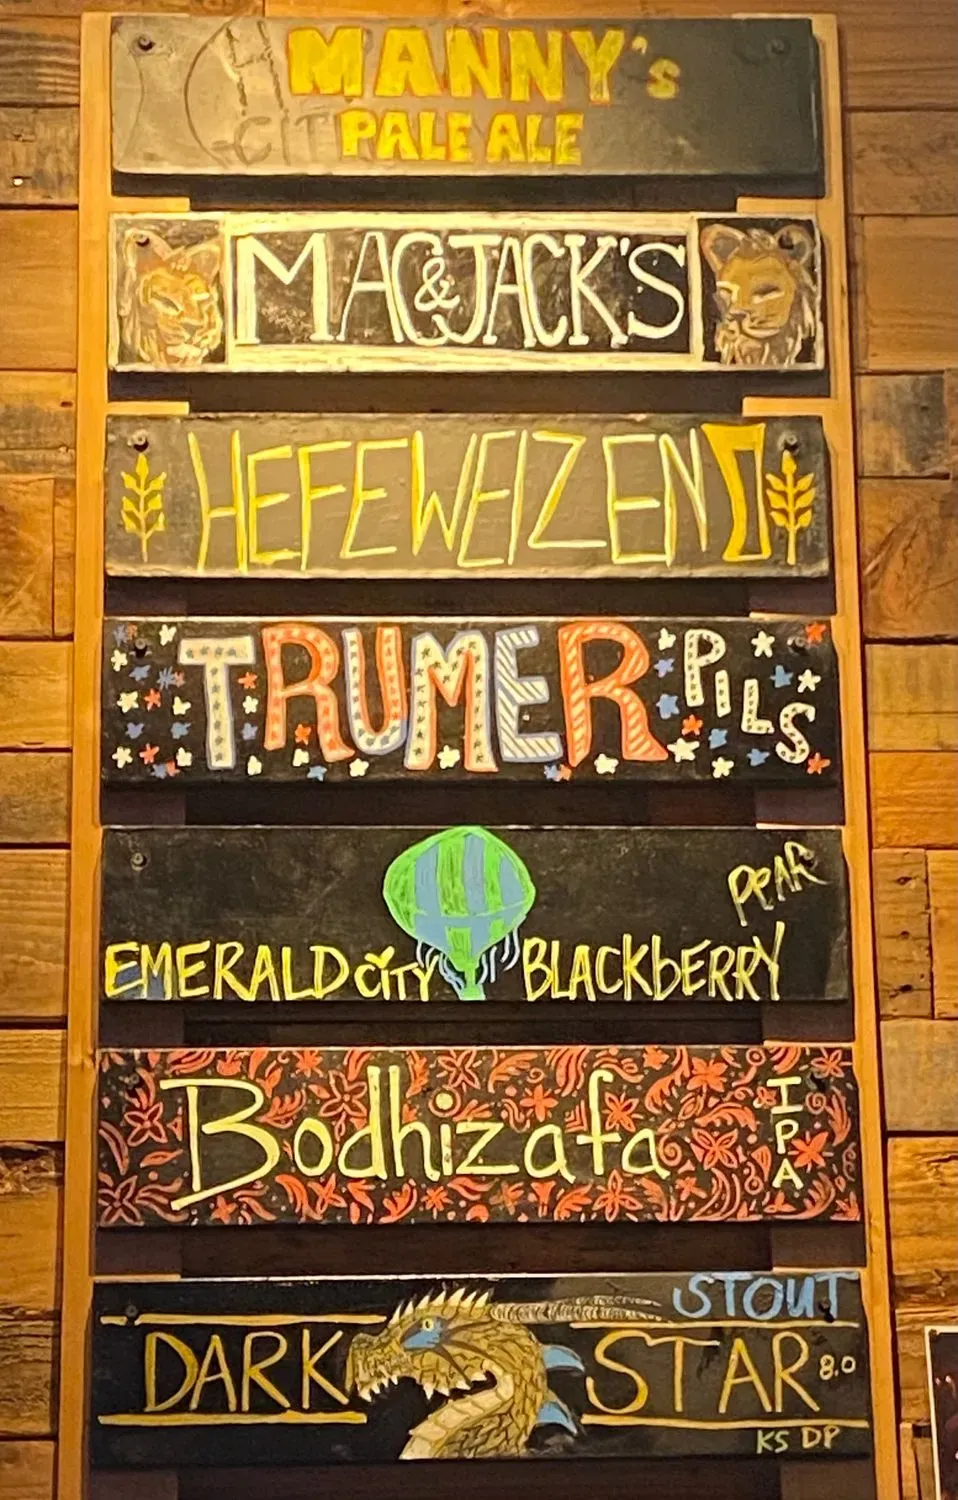 MANNY's
PALE ALE
MAC&JACK'S
HEFEWEIZEN
TRUMER PILS
EMERALD CITY BLACKBERRY
PEAR
Bodhizafa IPA
STOUT
DARK STAR 8.0
KS DP